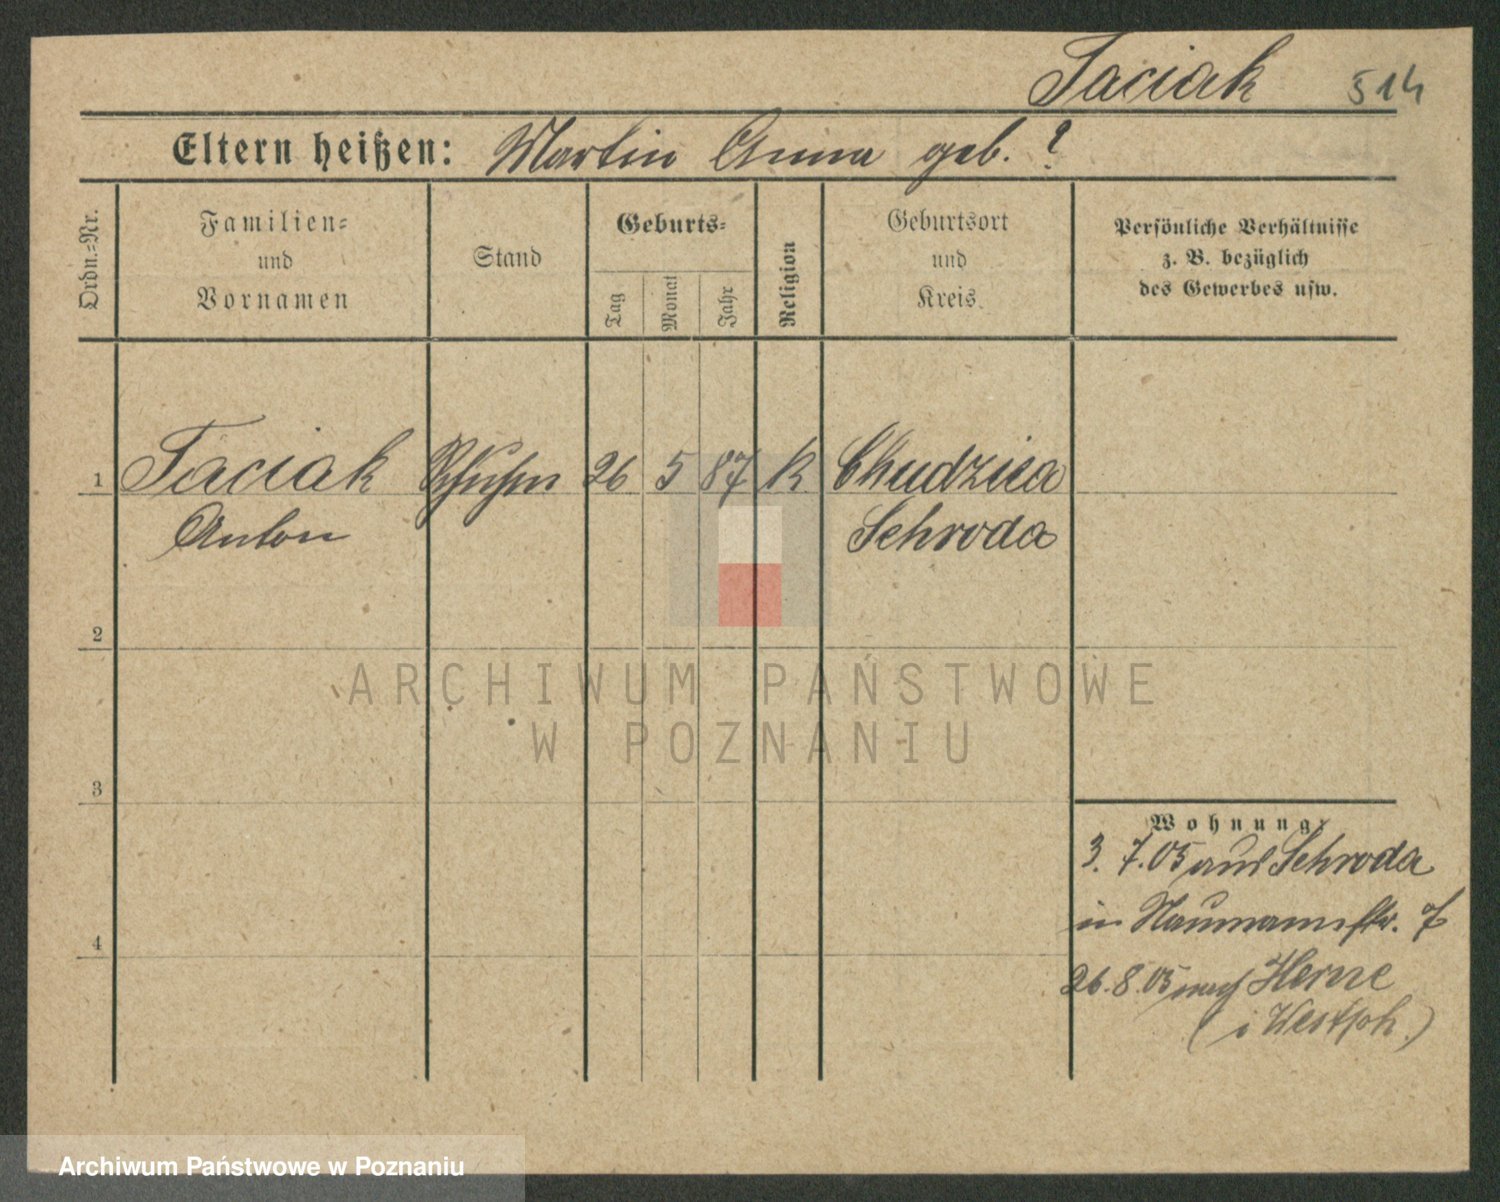 Taciak 514
Eltern heißen: Martin Anna geb. ?
Ordn.-Nr.
Familien-
und
Vornamen
Stand
Geburts-
Tag
Monat
Jahr
Religion
Geburtsort
und
Kreis.
Persönliche Verhältnisse
z. B. bezüglich
des Gewerbes usw.
1 Taciak 26 5 87 K
Anton Schroda
2
3
4
Wohnung:
3. 7. 05 aus Schroda
in Naumannstr. 7
26. 8. 05 nach Herne
(i Westph.)
ARCHIWUM PAŃSTWOWE
W POZNANIU
Archiwum Państwowe w Poznaniu